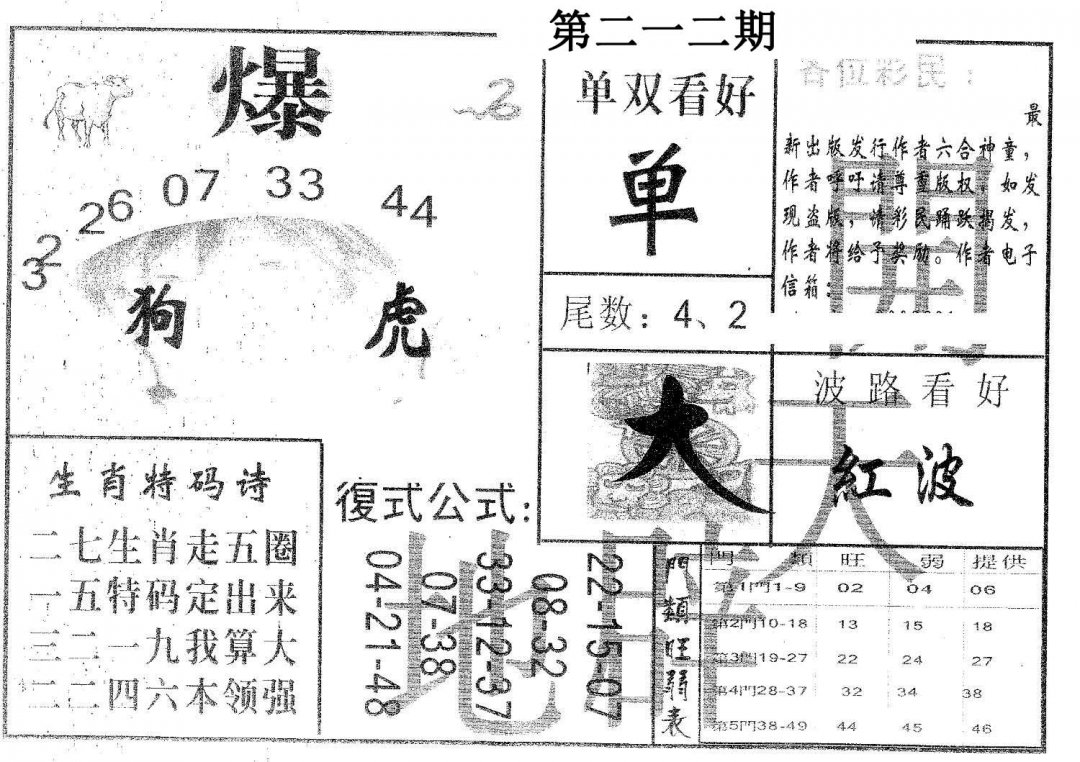 第二一二期
爆
26 07 33 44
32
狗 虎
单双看好
单
尾数：4、2
各位彩民：
最
新出版发行作者六合神童，
作者呼吁请尊重版权，如发
现盗版，情彩民踊跃揭发，
作者将给予奖励。作者电子
信箱：
大
波路看好
紅波
生肖特码诗
二七生肖走五圈
一五特码定出来
三二一九我算大
二二四六本领强
復式公式：
04-21-48
07-38
33-12-37
08-32
22-15-07
門類旺弱表
門 類 旺 弱 提供
第1門1-9 02 04 06
第2門10-18 13 15 18
第3門19-27 22 24 27
第4門28-37 32 34 38
第5門38-49 44 45 46